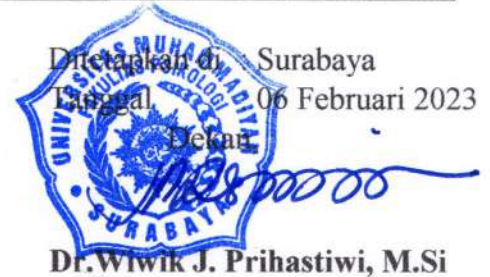 Ditetapkan di : Surabaya
Tanggal 06 Februari 2023
Dekan,
UNIVERSITAS MUHAMMADIYAH
FAKULTAS PSIKOLOGI
SURABAYA
Dr.Wiwik J. Prihastiwi, M.Si